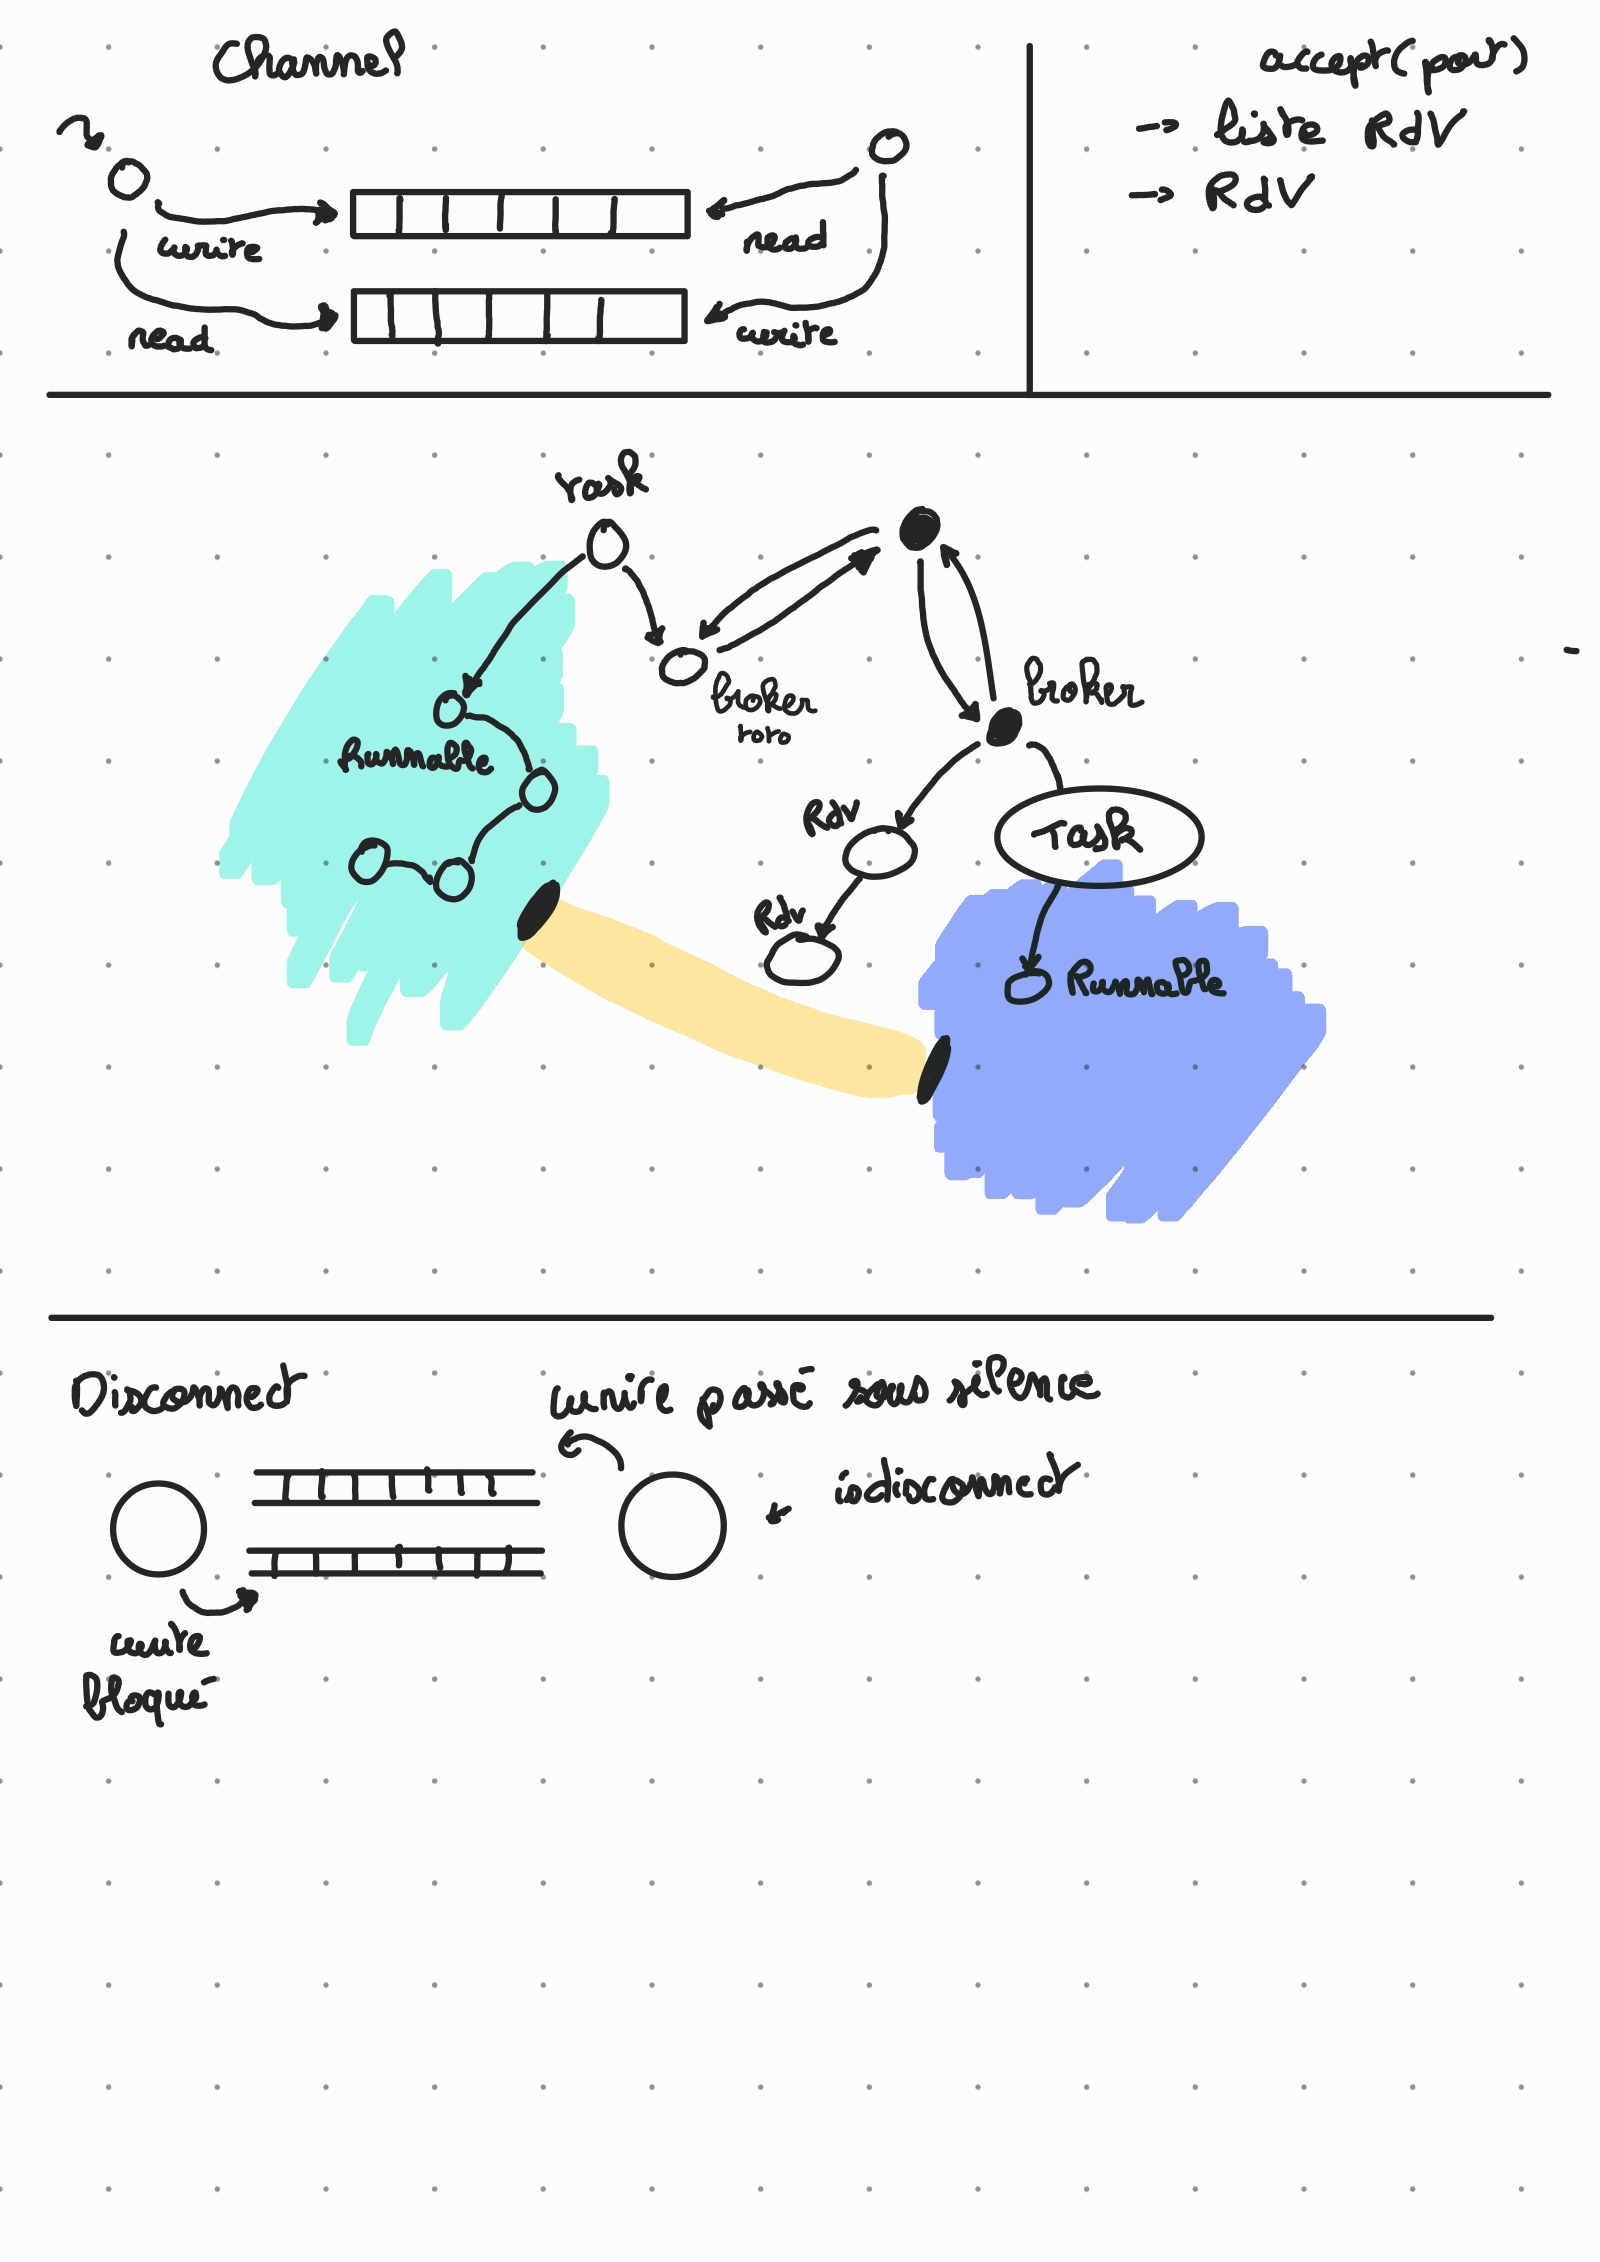 Channel
write
read
read
write
accept(port)
→ liste RdV
→ RdV
Task
broker
toto
Runnable
broker
Rdv
Task
Rdv
Runnable
Disconnect
write passé sous silence
isdisconnect
write
bloqué